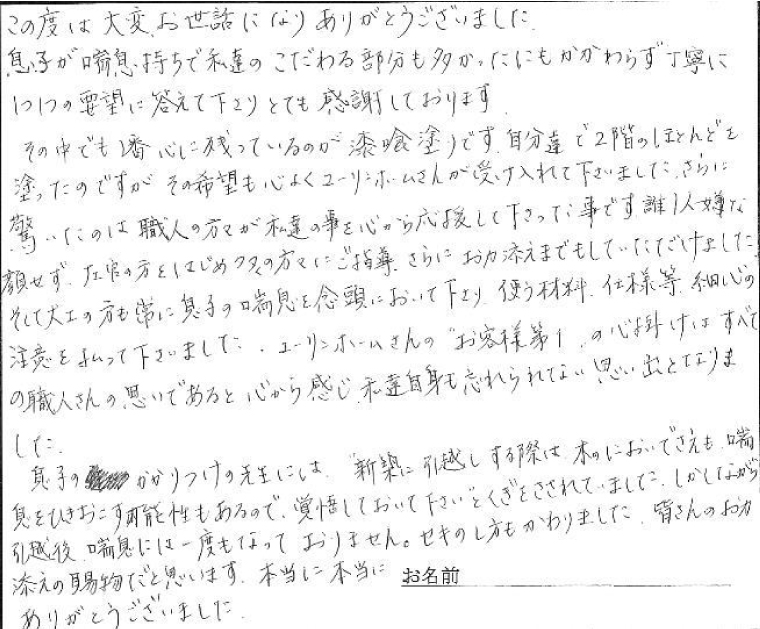 この度は大変お世話になりありがとうございました.
息子が喘息持ちで私達のこだわる部分も多かったにもかかわらず丁寧に
1つ1つの要望に答えて下さりとても感謝しております.
その中でも1番心に残っているのが漆喰塗りです.自分達で2階のほとんどを
塗ったのですがその希望も心よくユーリンホームさんが受け入れて下さいました.さらに
驚いたのは職人の方々が私達の事を心から応援して下さった事です.誰1人嫌な
顔せず、左官の方をはじめ多くの方々にご指導、さらにお力添えまでもしていただけました.
そして大工の方も常に息子の喘息を念頭において下さり、使う材料、仕様等、細心の
注意を払って下さいました.ユーリンホームさんの"お客様第1"の心掛けはすべて
の職人さんの思いであると心から感じ、私達自身も忘れられない思い出となりま
した.
息子のかかりつけの先生には、"新築に引越しする際は木のにおいでさえも、喘
息をひきおこす可能性もあるので、覚悟しておいて下さい"とくぎをさされていました.しかしながら
引越後、喘息には一度もなっておりません。セキのし方もかわりました.皆さんのお力
添えの賜物だと思います.本当に本当に お名前
ありがとうございました.